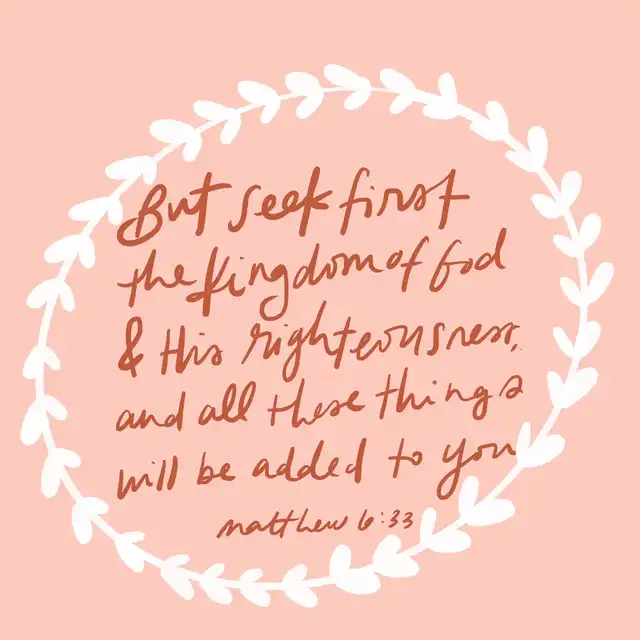 But seek first
the kingdom of God
& His righteousness,
and all these things
will be added to you
matthew 6:33